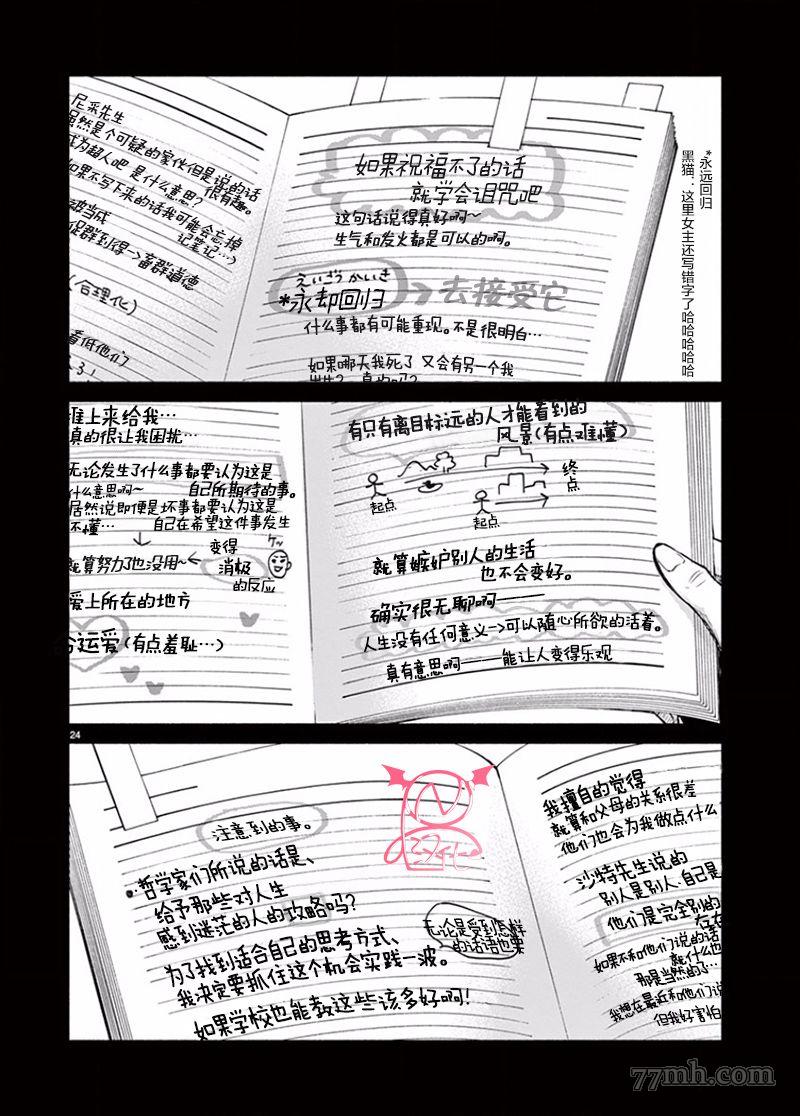 尼采先生
虽然是个可疑的家伙但是说的话
很有趣。
成为超人吧 是什么意思?
如果不写下来的话我可能会忘掉
记笔记…)
被当成
从群到得→畜群道德
(合理化)
看低他们
如果祝福不了的话
就学会诅咒吧
这句话说得真好啊~
生气和发火都是可以的啊。
えいごうかいき
*永却回归
→去接受它
什么事都有可能重现。不是很明白…
如果哪天我死了 又会有另一个我
出生? 真的吗?
*永远回归
黑猫:这里女主还写错字了哈哈哈哈哈
谁上来给我…
真的很让我困扰…
无论发生了什么事都要认为这是
自己所期待的事。
什么意思啊~
居然说即便是坏事都要认为这是
自己在希望这件事发生
不懂…
就算努力了也没用~
变得
消极
的反应
爱上所在的地方
命运爱(有点羞耻…)
有只有离目标远的人才能看到的
风景(有点难懂)
起点
起点
终点
就算嫉妒别人的生活
也不会变好。
确实很无聊啊———
人生没有任何意义→可以随心所欲的活着。
真有意思啊———能让人变得乐观
24
注意到的事。
•哲学家们所说的话是、
给予那些对人生
感到迷茫的人的攻略吗?
为了找到适合自己的思考方式、
我决定要抓住这个机会实践一波。
如果学校也能教这些该多好啊!
无论是受到怎样
的话语也要
汉化
我擅自的觉得
就算和父母的关系很差
他们也会为我做点什么
沙特先生说的
别人是别人·自己是
他们是完全别的
存在
如果不和他们说的话
就什么也
那是当然的…
我想在最近和他们说
但我好害怕
77mh.com